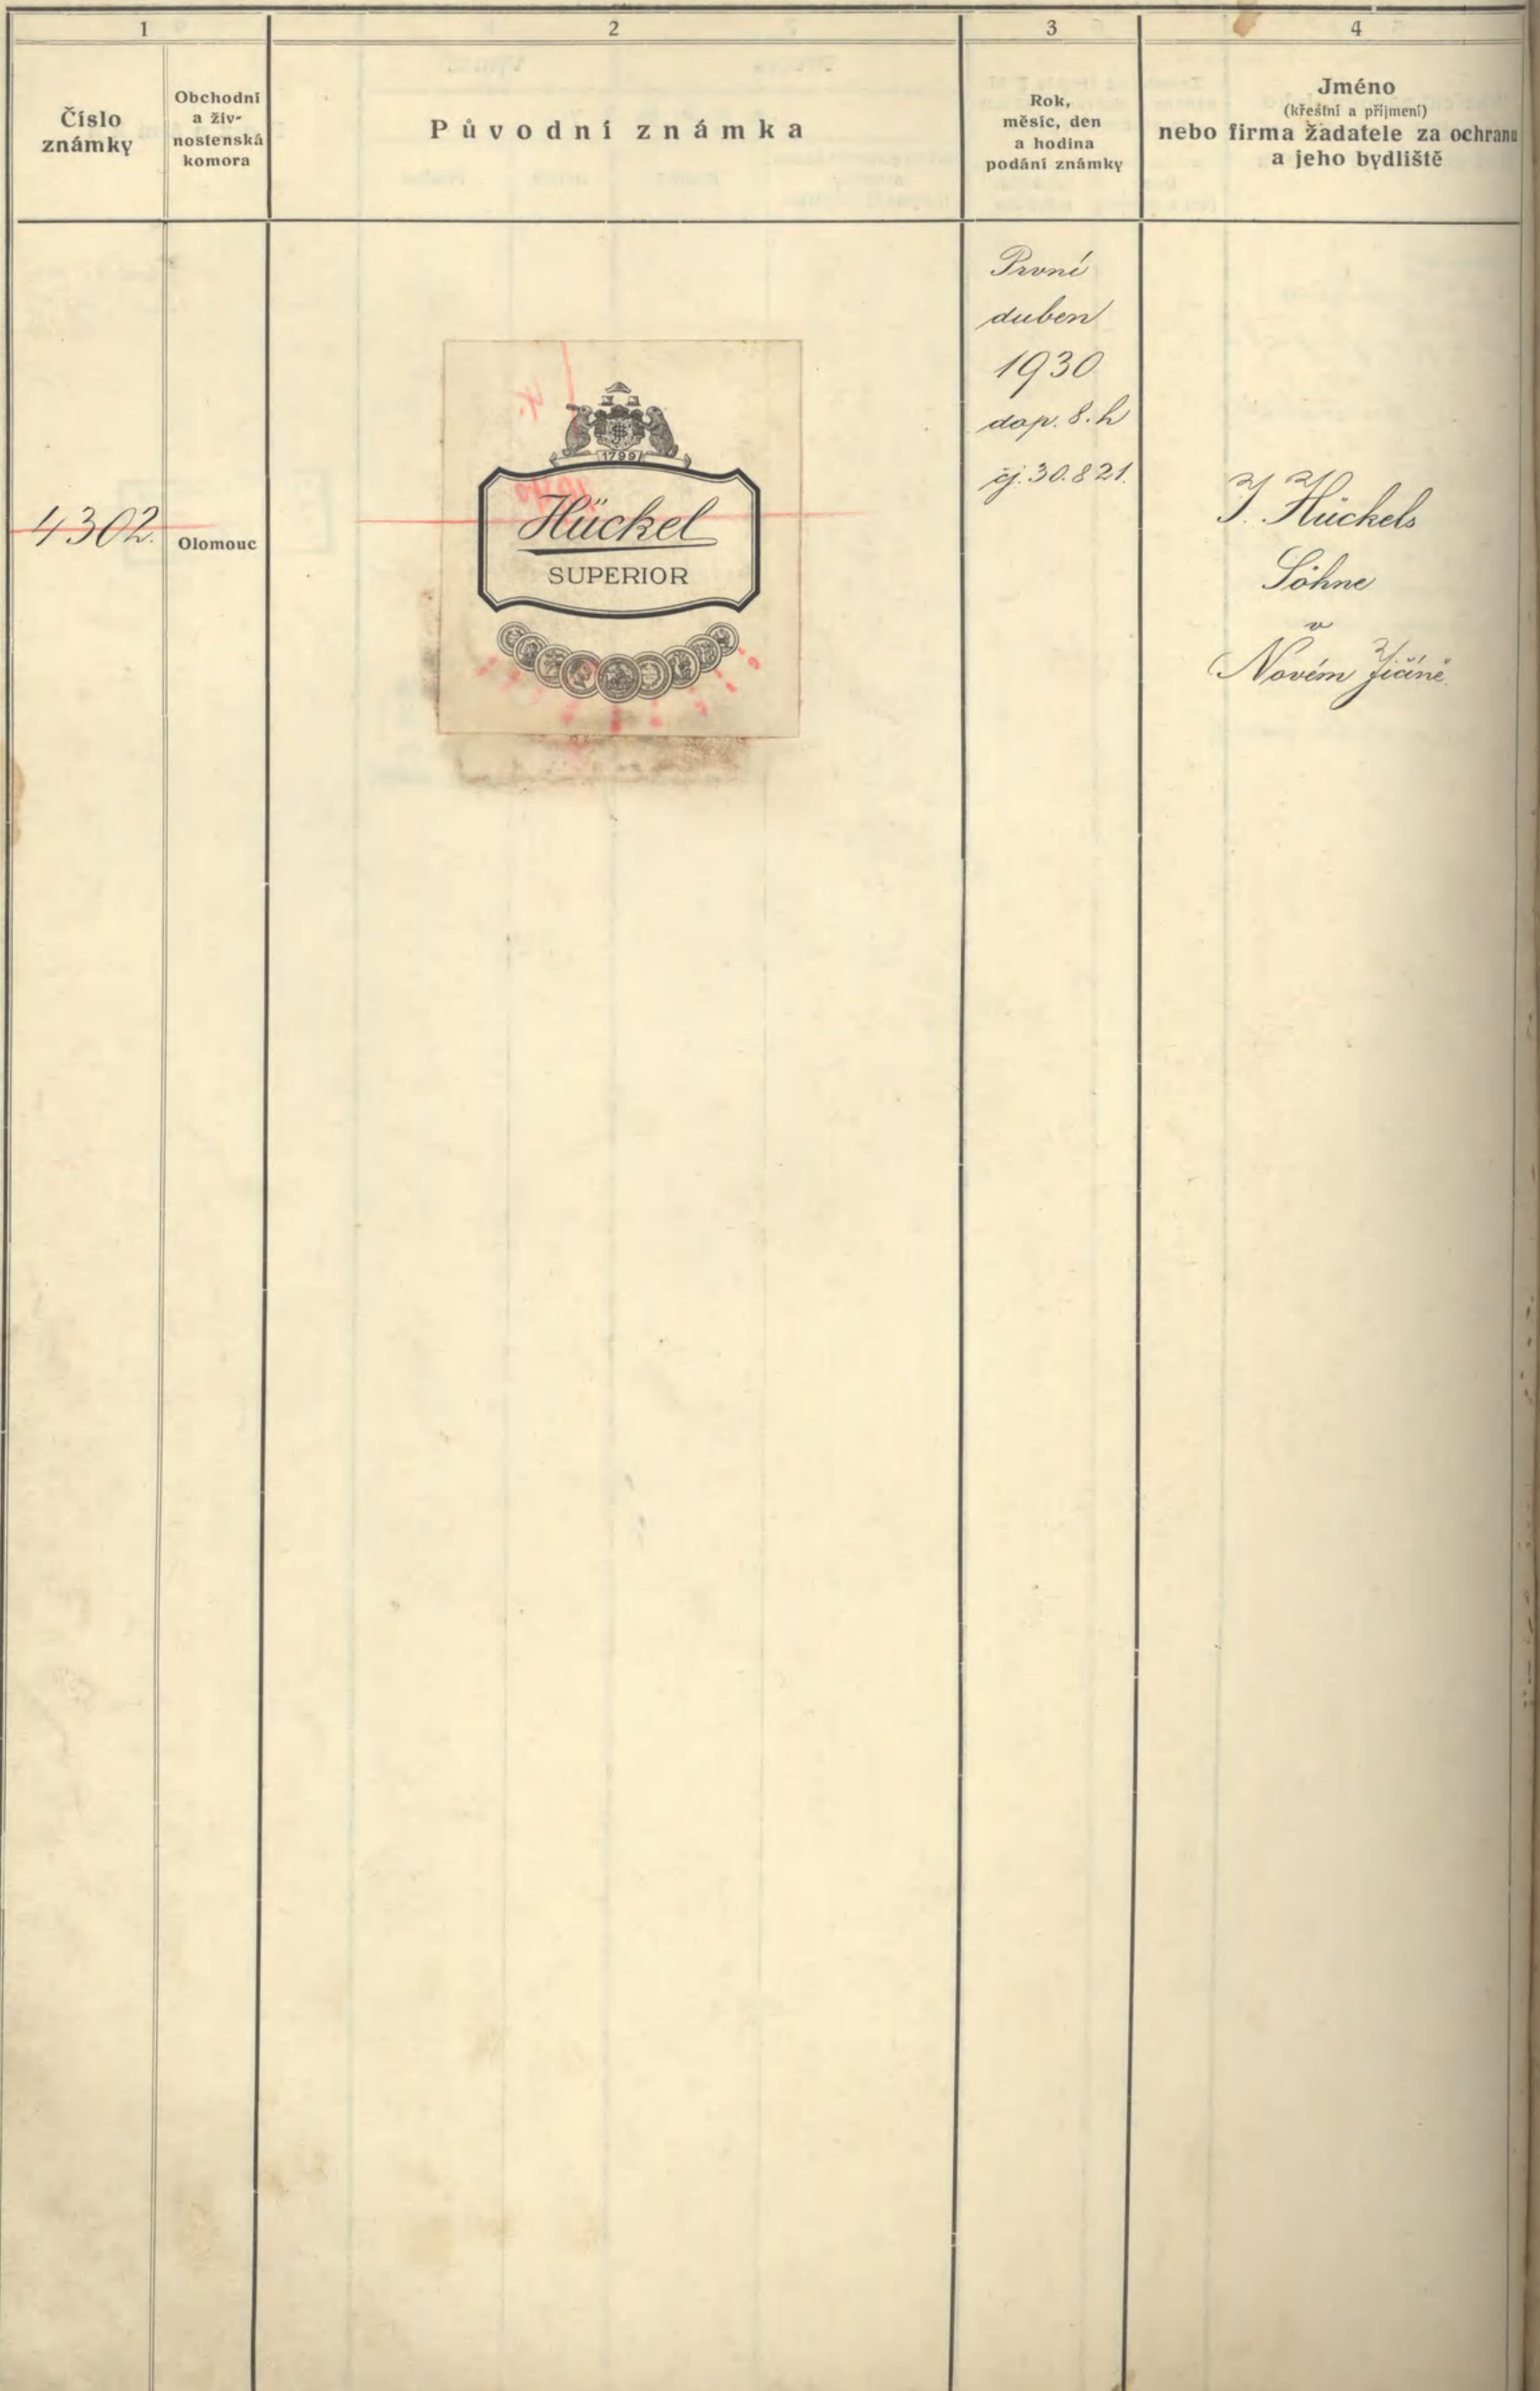 1
2
3
4
Číslo
známky
Obchodní
a živ-
nostenská
komora
Původní známka
Rok,
měsíc, den
a hodina
podání známky
Jméno
(křestní a příjmení)
nebo firma žadatele za ochranu
a jeho bydliště
4302.
Olomouc
1799
Hückel
SUPERIOR
První
duben
1930
dop. 8. h
čj. 30.821.
J. Hückels
Söhne
v
Novém Jičíně.